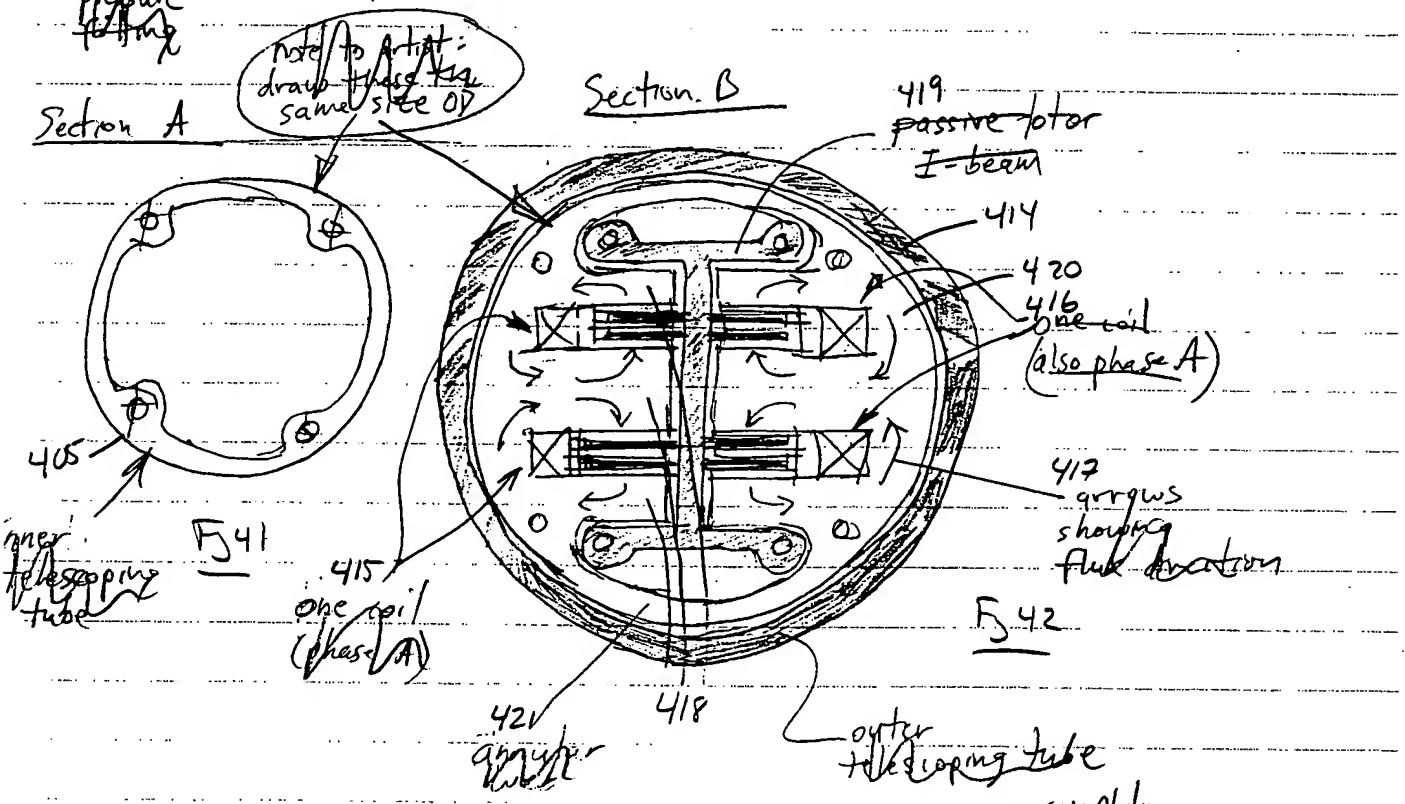 fitting
note to Artist:
draw these the
same size OD
Section A
Section B
419
passive rotor
I-beam
414
420
416
one coil
(also phase A)
417
arrows
showing
flux direction
405
inner
telescoping
tube
Fig 41
415
one coil
(phase A)
421
418
outer
telescoping tube
Fig 42